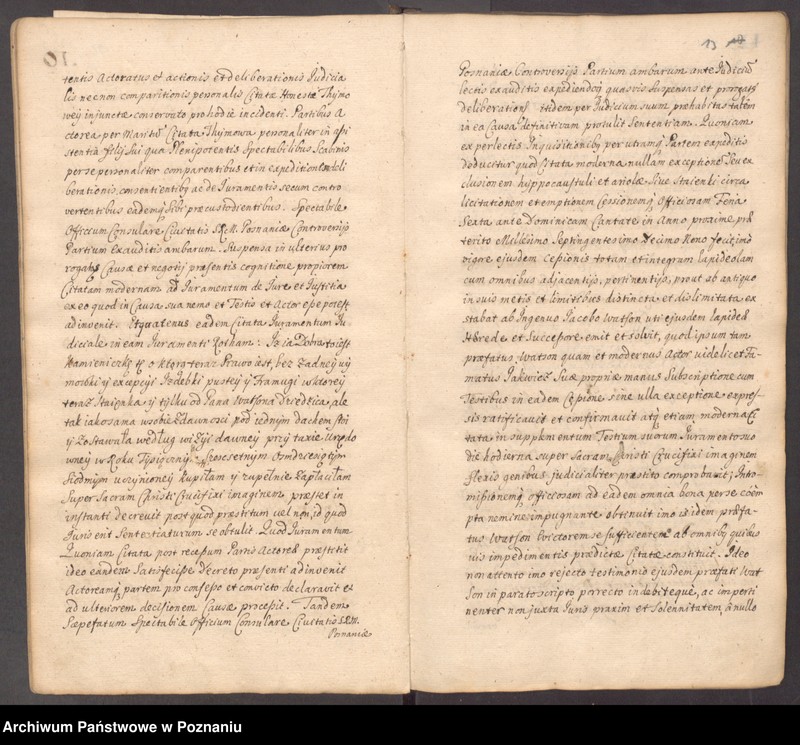 tentis Actoratus et actionis et deliberationis Judicia
lis necnon comparitionis personalis Citatæ Honestæ Thymo
wey injunctæ conservato pro hodie incidenti. Partibus A
ctorea per Maritū Citata Thymowa personaliter in assi
stentia filij sui qua Plenipotentis Spectabilibus Scabinis
per se personaliter comparentibus et in expeditionē deli
berationis, consentientibꝫ ac de Juramentis secum contro
vertentibus eademqꝫ sibi præcustodientibus. Spectabile
Officium Consulare Civitatis S.R.M. Posnaniæ Controversijs
Partium exauditis ambarum. Suspensa in ulterius pro
rogatis Causæ et negotij præsentis cognitione propiorem
Citatam modernam ad Juramentum de Jure et Justitia
ex eo quod in Causa sua nemo et Testis et Actor esse potest
adinvenit. Et quatenus eadem Citata Juramentum Ju
diciale in eam Juramenti Rotham: Jż ia Dobra tojest
Kamieniczkę tę o ktorą teraz Prawo iest, bez żadney wy
mowki y excepcyi Izdebki pustey y Framugi w ktorey
teraz Stajęnka y tylko od Pana Watsona dziedzica, ale
tak iako sama w sobie zdawnosci pod iednym dachem stoi
y zostawała według wizyi dawney przy taxie Urzędo
wney w Roku Tysiącznym Szescsetnym Osmdziesiątym
Siodmym uczynioney kupiłam y zupełnie zapłaciłam
Super Sacram Christi Crucifixi imaginem præstet in
instanti decrevit post quod præstitum vel non, id quod
Juris erit Sententiaturum se obtulit. Quod Juramentum
Quoniam Citata post recessum Partis Actoreæ præstitit
ideo eandem Satisfecisse Decreto præsenti adinvenit
Actoreamqꝫ partem pro confesso et convicto declaravit et
ad ulteriorem decisionem Causæ præcessit. Tandem
Sæpefatum Spectabile Officium Consulare Civitatis S.R.M.
Posnaniæ
13
Posnaniæ Controversijs Partium ambarum ante Judiciū
lectis exauditis expediendoqꝫ quasvis suspensas et prorogatas
deliberationes itidem per Judicium suum prohabitas talem
in ea Causa definitivam protulit Sententiam. Quoniam
ex perlectis Inquisitionibꝫ per utramqꝫ Partem expeditis
doducitur quod Citata moderna nullam exceptionē seu ex
clusionem hyppocaustuli et ariolæ sive Staienki circa
licitationem et emptionem Cessionemqꝫ Officiosam Feria
Sexta ante Dominicam Cantate in Anno proxime præ
terito Millesimo Septingentesimo Decimo Nono fecit, imo
vigore ejusdem Cessionis totam et integram lapideolam
cum omnibus adjacentijs, pertinentijs, prout ab antiquo
in suis metis et limitibus distincta et dislimitata ex
stabat ab Ingenuo Jacobo Watson uti ejusdem lapideæ
Hærede et Successore emit et solvit, quod ipsum tam
præfatus Watson quam et modernus Actor videlicet Fa-
matus Jakwicz Suæ propriæ manus Subscriptione cum
Testibus in eadem Cessione sine ulla exceptione expres-
sis ratificavit et confirmavit atqꝫ etiam moderna Ci
tata in supplementum Testium suorum Juramento suo
die hodierna super Sacram Christi Crucifixi imaginem
flexis genibus judicialiter præstito comprobavit; Intro-
missionemqꝫ officiosam ad eadem omnia bona per se coëm
pta nemine impugnante obtinuit imo is idem præfa-
tus Watson Evictorem se sufficientem ab omnibꝫ quibus
uis impedimentis prædictæ Citatæ constituit. Ideo
non attento imo rejecto testimonio ejusdem præfati Wat
son in parato scripto porrecto indebiteque, ac imperti
nenter non juxta Juris praxim et Solennitatem à nullo
Archiwum Państwowe w Poznaniu